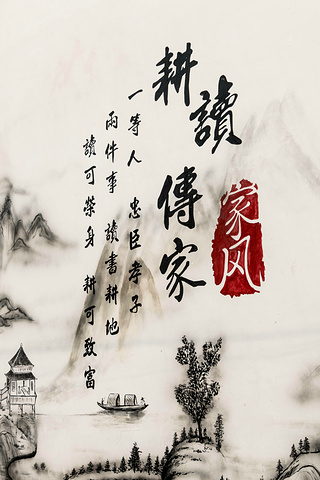 耕讀傳家
家风
一等人 忠臣孝子
兩件事 讀書耕地
讀可榮身 耕可致富